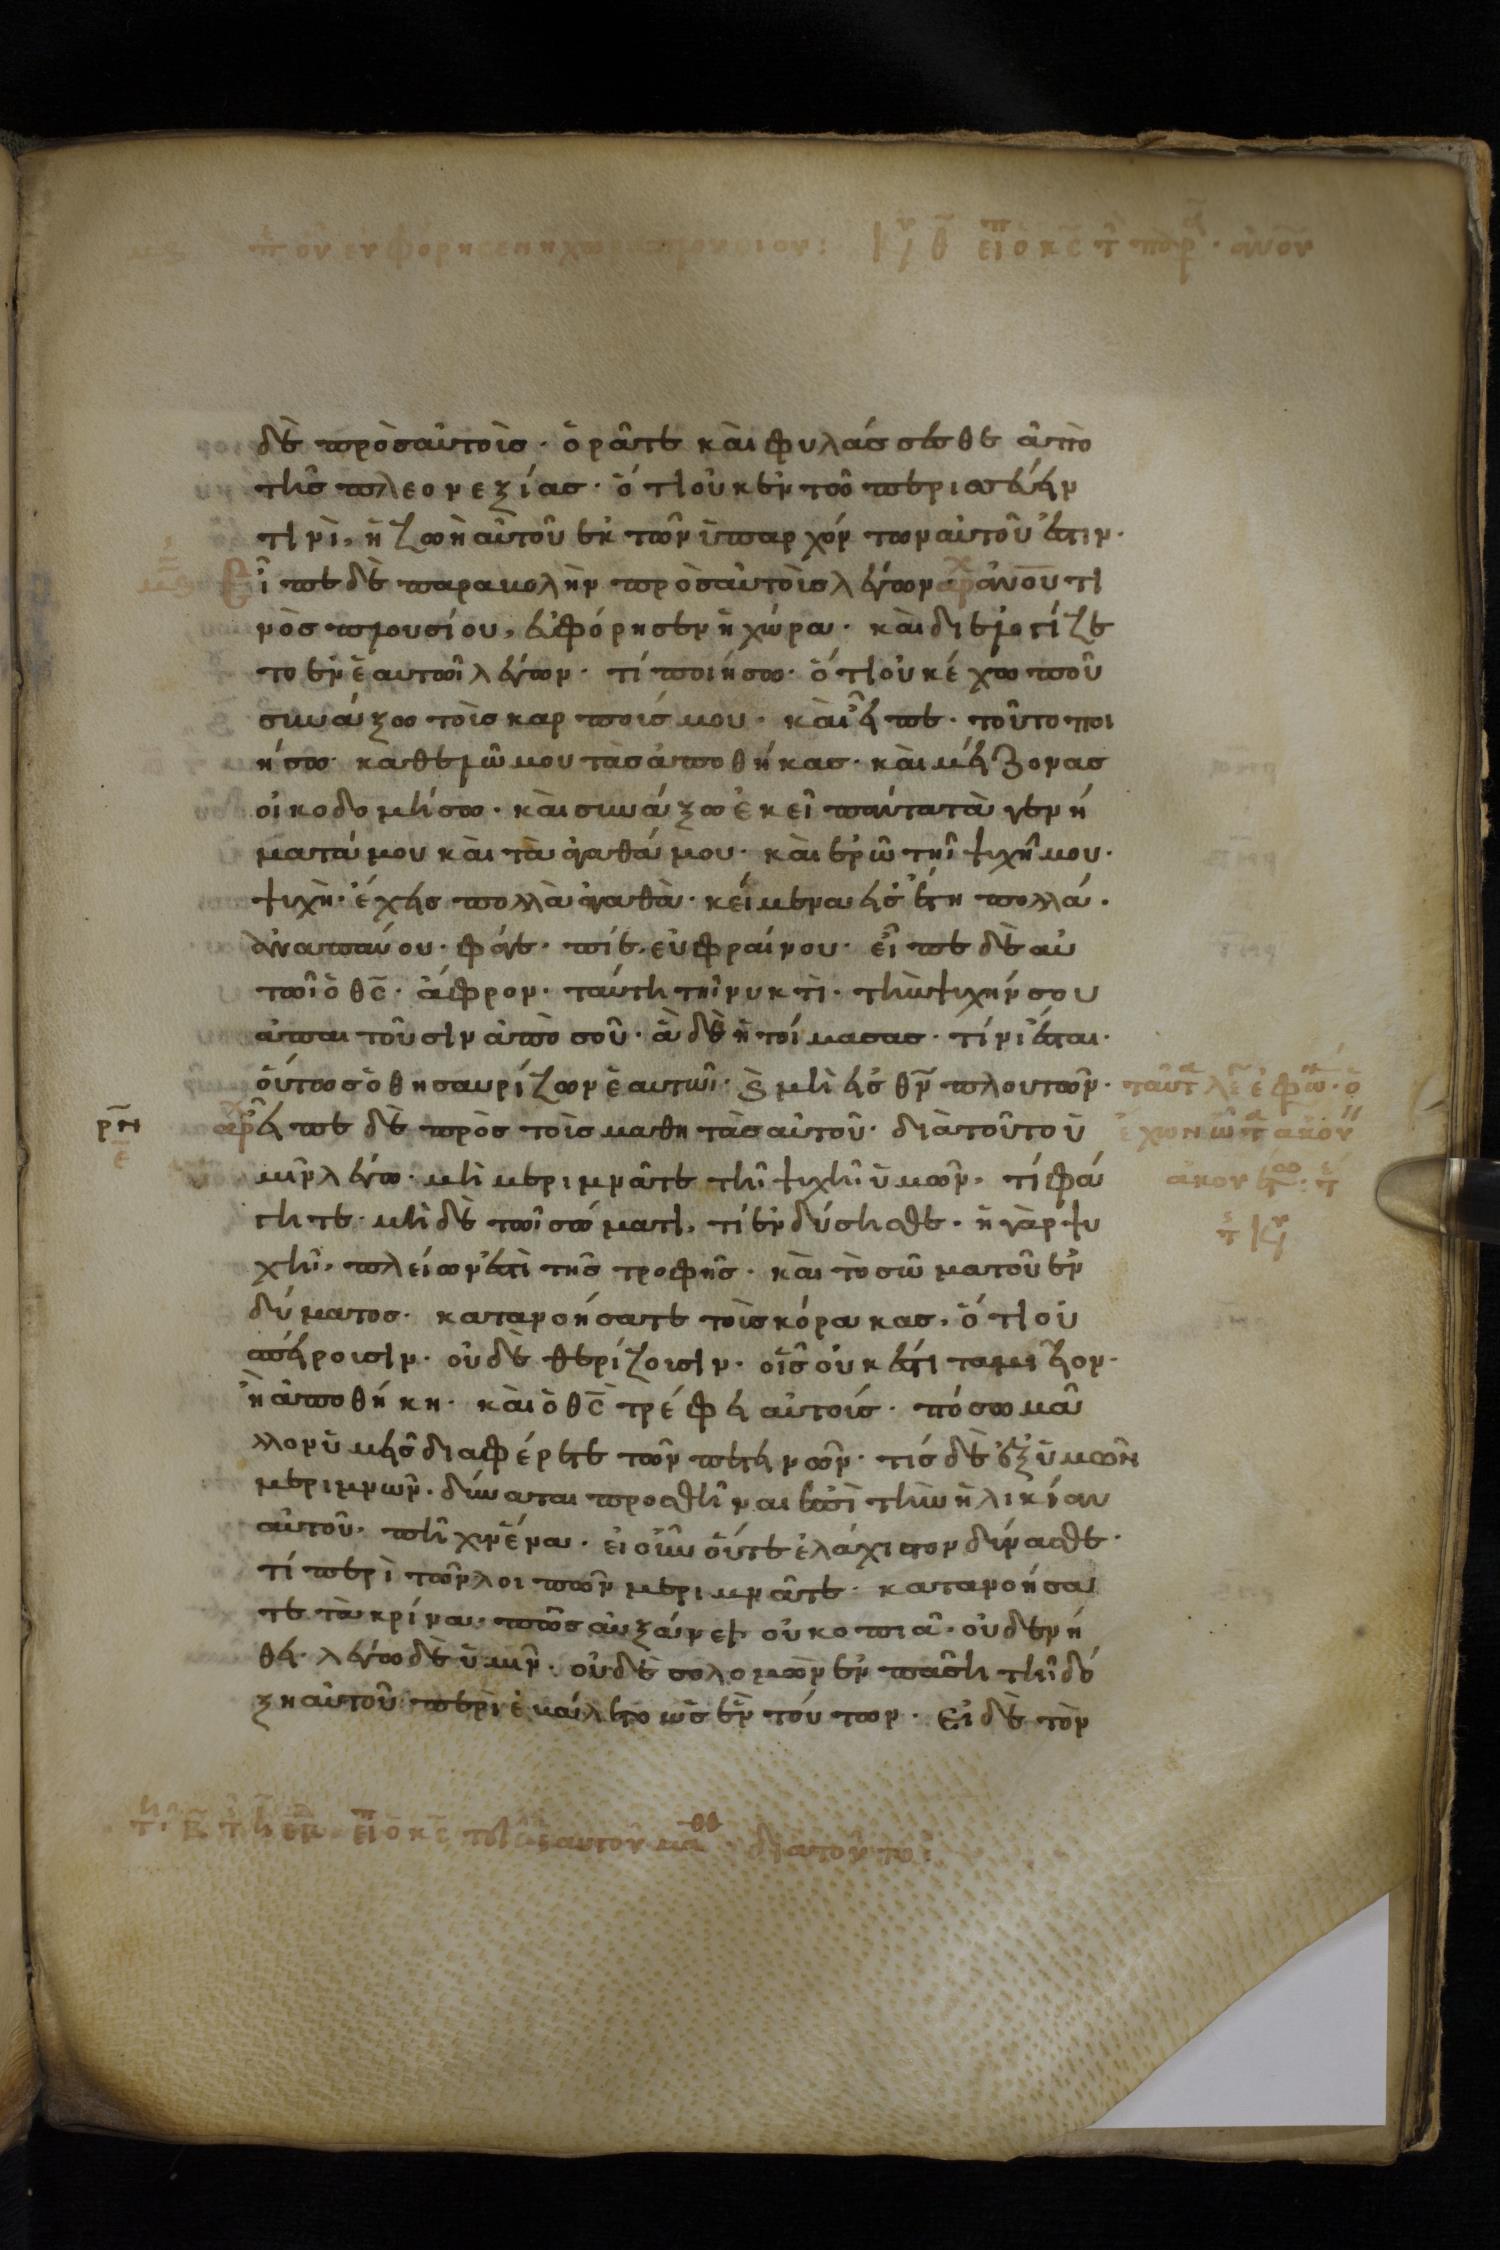 δὲ πρὸσαὐτοὺσ· ὁρᾶτε καὶ φυλάσσεσθε ἀπὸ
τῆσ πλεονεξίασ· ὅτι οὐκ ἐν τῶ περισσεύειν
τινὶ, ἡ ζωὴ αὐτοῦ ἐκ τῶν ὑπαρχόντων αὐτοῦ ἐστιν·
Εἶπε δὲ παραβολὴν πρὸσ αὐτοὺσ λέγων ἀνου τι
νὸσ πλουσίου, εὐφόρησεν ἡ χώρα· καὶ διελογίζε
το ἐν ἑαυτῶι λέγων· τί ποιήσω· ὅτι οὐκ έχω ποῦ
συνάξω τοὺσ καρπούσ μου· καὶ εἶπε· τοῦτο ποι
ήσω· καθελῶ μου τὰσ ἀποθήκασ· καὶ μείζονασ
οἰκοδομήσω· καὶ συνάξω ἐκεῖ πάντα τὰ γενή
ματά μου καὶ τὰ ἀγαθά μου· καὶ ἐρῶ τῆι ψυχῆ μου·
ψυχὴ· έχεισ πολλὰ ἀγαθὰ· κείμενα εἰσ έτη πολλά·
ἀναπαύου· φάγε· πίε, εὐφραίνου· εἶπε δὲ αὐ
τῶι ὁ θς· ἄφρον· ταύτη τῆι νυκτὶ· τὴν ψυχήν σου
ἀπαιτοῦσιν ἀπὸ σοῦ· ἃ δὲ ἡτοίμασασ· τίνι έσται·
οὕτωσ ὁ θησαυρίζων ἑαυτῶι· καὶ μὴ εἰσ θν πλουτῶν·
ταῦτ λε ἐφω· ὁ
ρν εἶπε δὲ πρὸσ τοὺσ μαθητὰσ αὐτοῦ· διὰ τοῦτο ὑ
ε
μῖν λέγω· μὴ μεριμνᾶτε τῆ ψυχῆ ὑμῶν, τί φά
γητε· μὴ δὲ τῶι σώματι, τί ἐνδύσησθε· ἡ γὰρ ψυ
χὴ, πλείων ἐστὶ τῆσ τροφῆσ· καὶ τὸ σῶμα τοῦ ἐν
δύματοσ· κατανοήσατε τοὺσ κόρακασ, ὅτι οὐ
σπείρουσιν· οὐδὲ θερίζουσιν· οἷσ οὐκ έστι ταμεῖον·
ἢ ἀποθήκη· καὶ ὁ θς τρέφει αὐτούσ· πόσω μᾶ
λλον ὑμεῖσ διαφέρετε τῶν πετεινῶν· τίσ δὲ ἐξ ὑμῶν
μεριμνων· δύναται προσθῆναι ἐπὶ τὴν ἡλικίαν
αὐτοῦ· πῆχυν ἕνα· εἰ οὖν οὔτε ἐλάχιστον δύνασθε·
τί περὶ τῶν λοιπῶν μεριμνᾶτε· κατανοήσα
τε τὰ κρίνα· πῶσ αὐξάνει· οὐ κοπιᾶ· οὐδὲ νή
θει· λέγω δὲ ὑμῖν· οὐδὲ σολομὼν ἐν πάση τῆ δό
ξη αὐτοῦ περιεβάλετο ὡσ ἓν τούτων· Εἰ δὲ τὸν